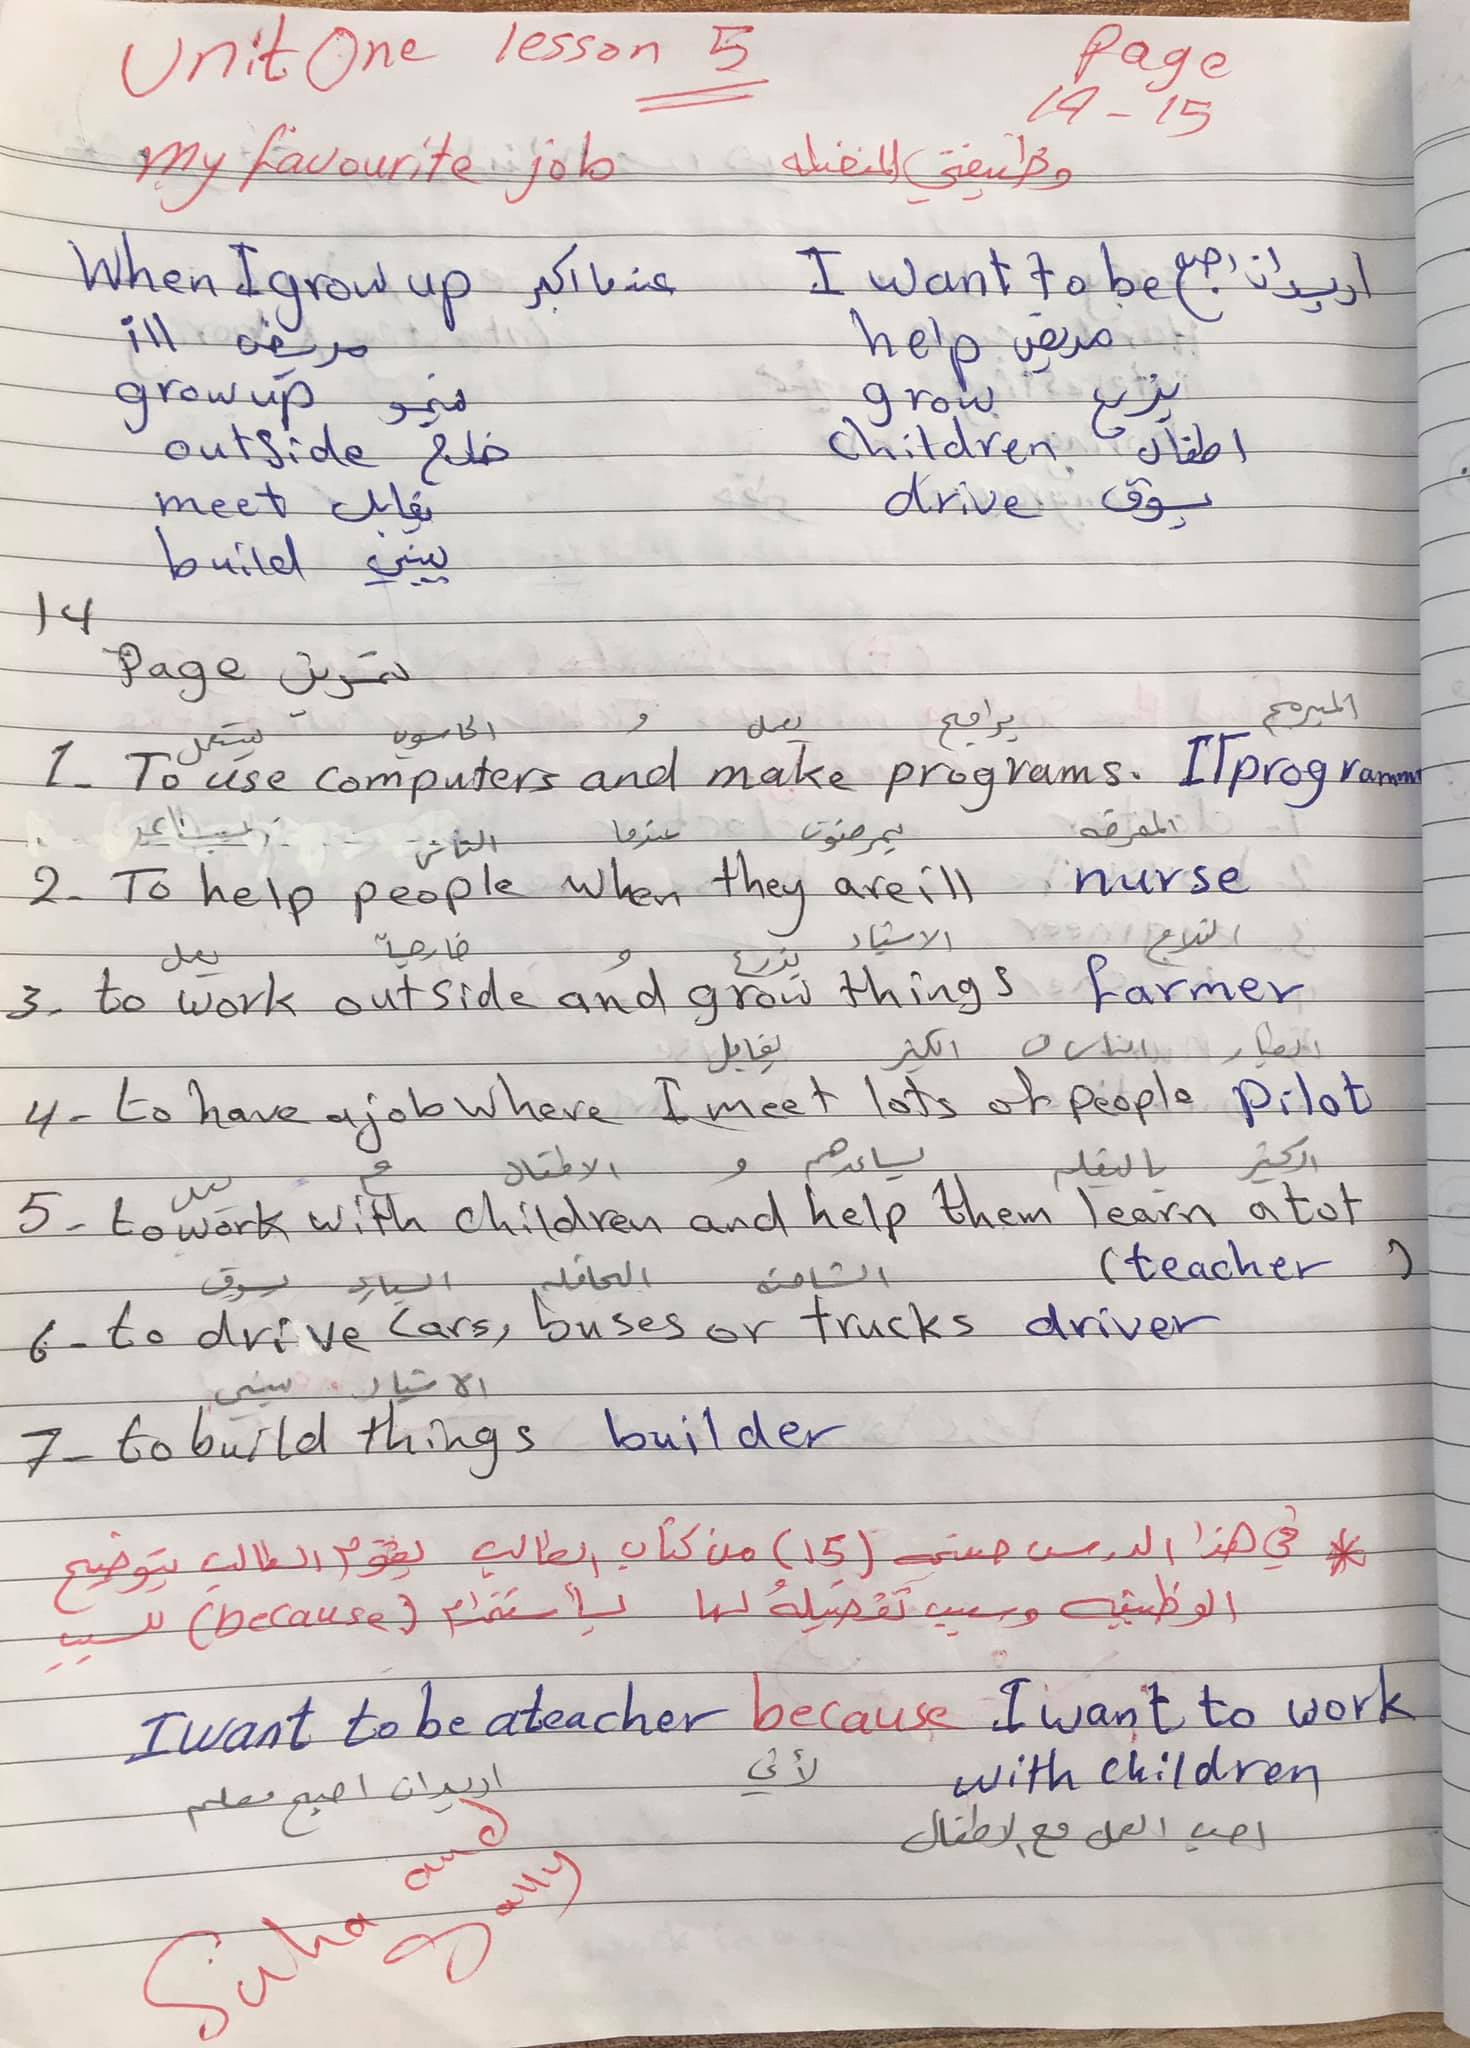 Unit One lesson 5 Page
14 - 15
My favourite job وظيفتي المفضله
When I grow up عندما اكبر I want to be اريد ان اصبح
ill مريض help مريض
grow up ينمو grow يزرع
outside خارج children اطفال
meet يقابل drive يسوق
build يبني
14
Page تمرين
يستعمل الحاسوب و يعمل برامج المبرمج
1- To use computers and make programs. IT programm
الناس عندما يمرضون الممرضه
2- To help people when they are ill nurse
يعمل خارجيا و يزرع الاشياء الفلاح
3- to work outside and grow things farmer
يقابل الكثير الناس الطيار
4- to have a job where I meet lots of people pilot
يعمل مع الاطفال و يساعدهم بالتعلم الكثير
5- to work with children and help them learn a lot
(teacher)
يسوق السياره الحافله الشاحنه
6- to drive cars, buses or trucks driver
يبني الاشياء
7- to build things builder
* في هذا الدرس (15) من كتاب الطالب يقوم الطالب بتوضيح
الوظيفه وسبب تفضيله لها بأستخدام (because) للسبب
I want to be a teacher because I want to work
with children
اريد ان اصبح معلم لأني
احب العمل مع الاطفال
Suha and
Sally